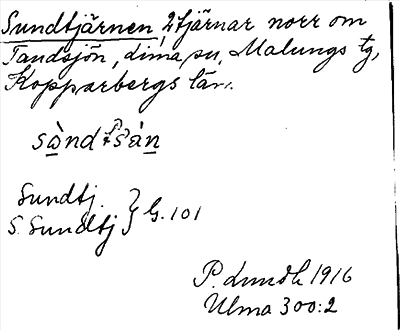 Sundtjärnen, 2 tjärnar norr om
Tandsjön, Lima sn, Malungs tg,
Kopparbergs län.
Sundtj. } G. 101
S. Sundtj
P. Lundh 1916
Ulma 300:2